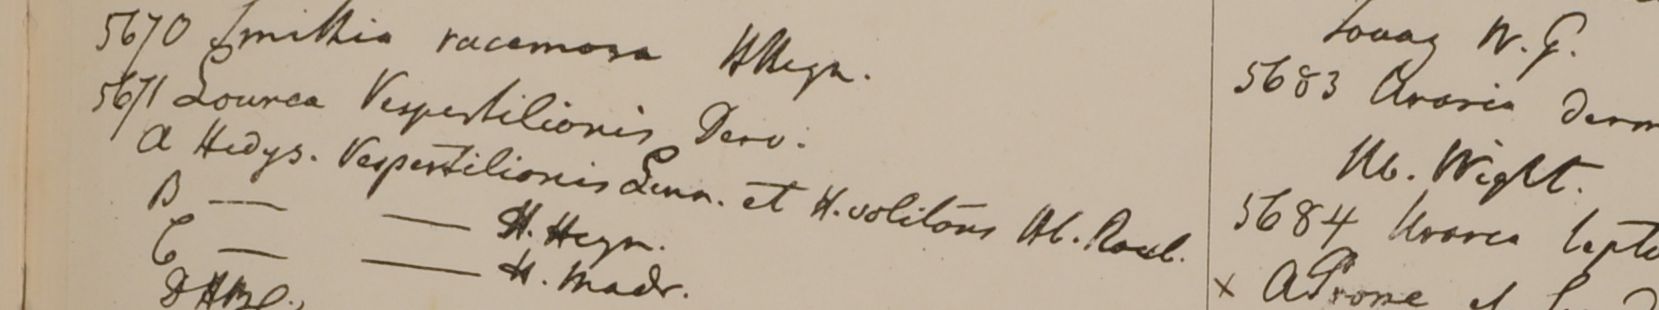 5670 Smithia racemosa HHeyn.
5671 Lourea Vespertilionis Desv.
A Hedys. Vespertilionis Linn. et H. volitans Hb. Roxb.
B — — H. Heyn.
C — — H. Madr.
D HBC.
Tovag W. G.
5683 Uraria
Hb. Wight.
5684 Uraria lepto
x A Prome et